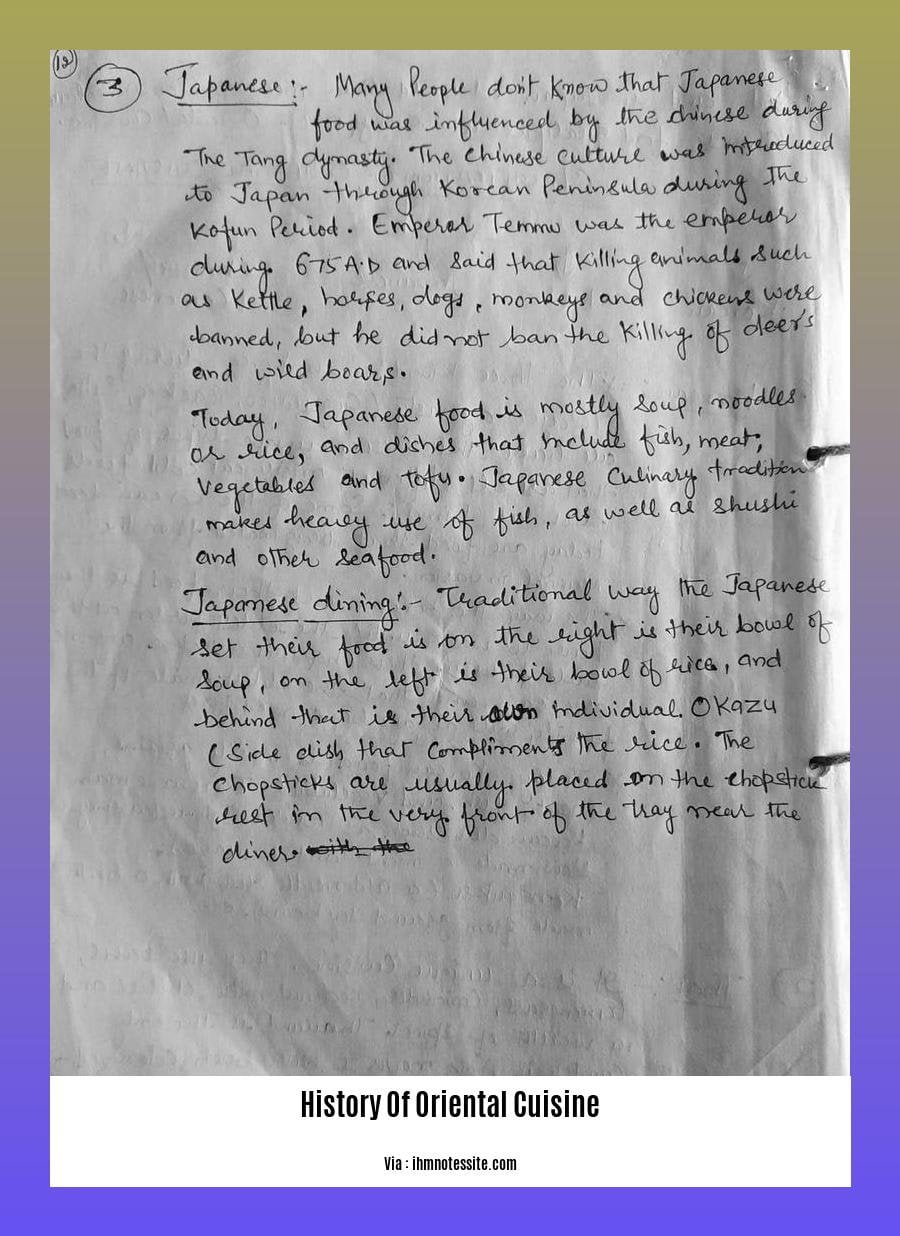 12
3 Japanese :- Many People don't know that Japanese
food was influenced by the chinese during
The Tang dynasty. The Chinese culture was introduced
to Japan through Korean Peninsula during the
Kofun Period. Emperor Temmu was the emperor
during. 675 A.D and said that killing animals such
as Kettle, horses, dogs, monkeys and chickens were
banned, but he did not ban the killing of deer's
and wild boars.
Today, Japanese food is mostly soup, noodles
or rice, and dishes that include fish, meat,
vegetables and tofu. Japanese Culinary tradition
makes heavy use of fish, as well as shushi
and other seafood.
Japanese dining :- Traditional way the Japanese
set their food is on the right is their bowl of
soup, on the left is their bowl of rice, and
behind that is their individual. Okazu
(Side dish that compliments the rice. The
chopsticks are usually. placed on the chopstick
rest in the very. front of the tray near the
diner. with the
History Of Oriental Cuisine
Via : ihmnotessite.com